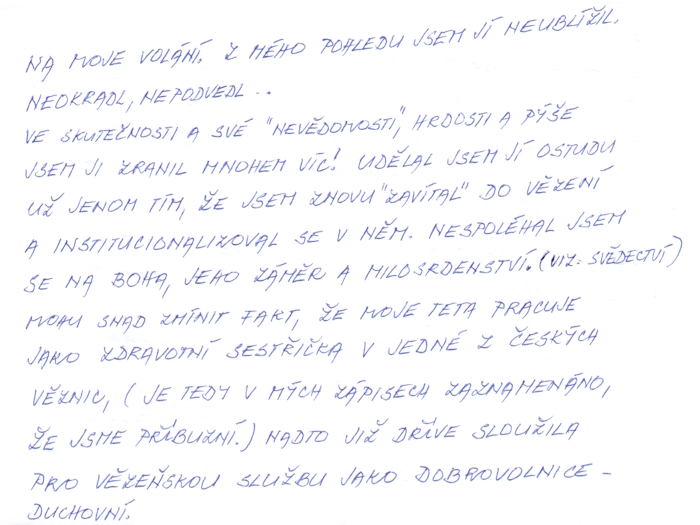 NA MOJE VOLÁNÍ. Z MÉHO POHLEDU JSEM JÍ NEUBLÍŽIL.
NEOKRADL, NEPODVEDL..
VE SKUTEČNOSTI A SVÉ "NEVĚDOMOSTI", HRDOSTI A PÝŠE
JSEM JI ZRANIL MNOHEM VÍC! UDĚLAL JSEM JÍ OSTUDU
UŽ JENOM TÍM, ŽE JSEM ZNOVU "ZAVÍTAL" DO VĚZENÍ
A INSTITUCIONALIZOVAL SE V NĚM. NESPOLÉHAL JSEM
SE NA BOHA, JEHO ZÁMĚR A MILOSRDENSTVÍ. (VIZ: SVĚDECTVÍ)
MOHU SNAD ZMÍNIT FAKT, ŽE MOJE TETA PRACUJE
JAKO ZDRAVOTNÍ SESTŘIČKA V JEDNÉ Z ČESKÝCH
VĚZNIC, (JE TEDY V MÝCH ZÁPISECH ZAZNAMENÁNO,
ŽE JSME PŘÍBUZNÍ.) NADTO JIŽ DŘÍVE SLOUŽILA
PRO VĚZEŇSKOU SLUŽBU JAKO DOBROVOLNICE -
DUCHOVNÍ.